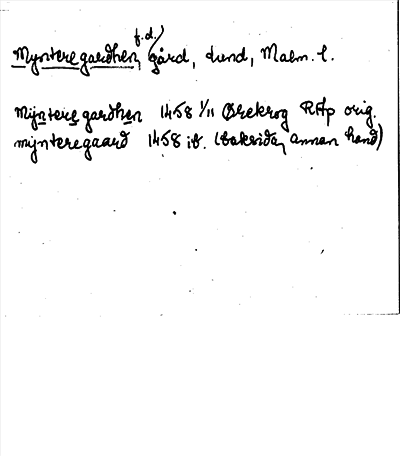 f.d.
Mynteregardhen, gård, Lund, Malm. l.
Mijnteregardhen 1458 1/11 Örekrog RAp orig.
mijnteregaard 1458 ib. (baksidan, annan hand)